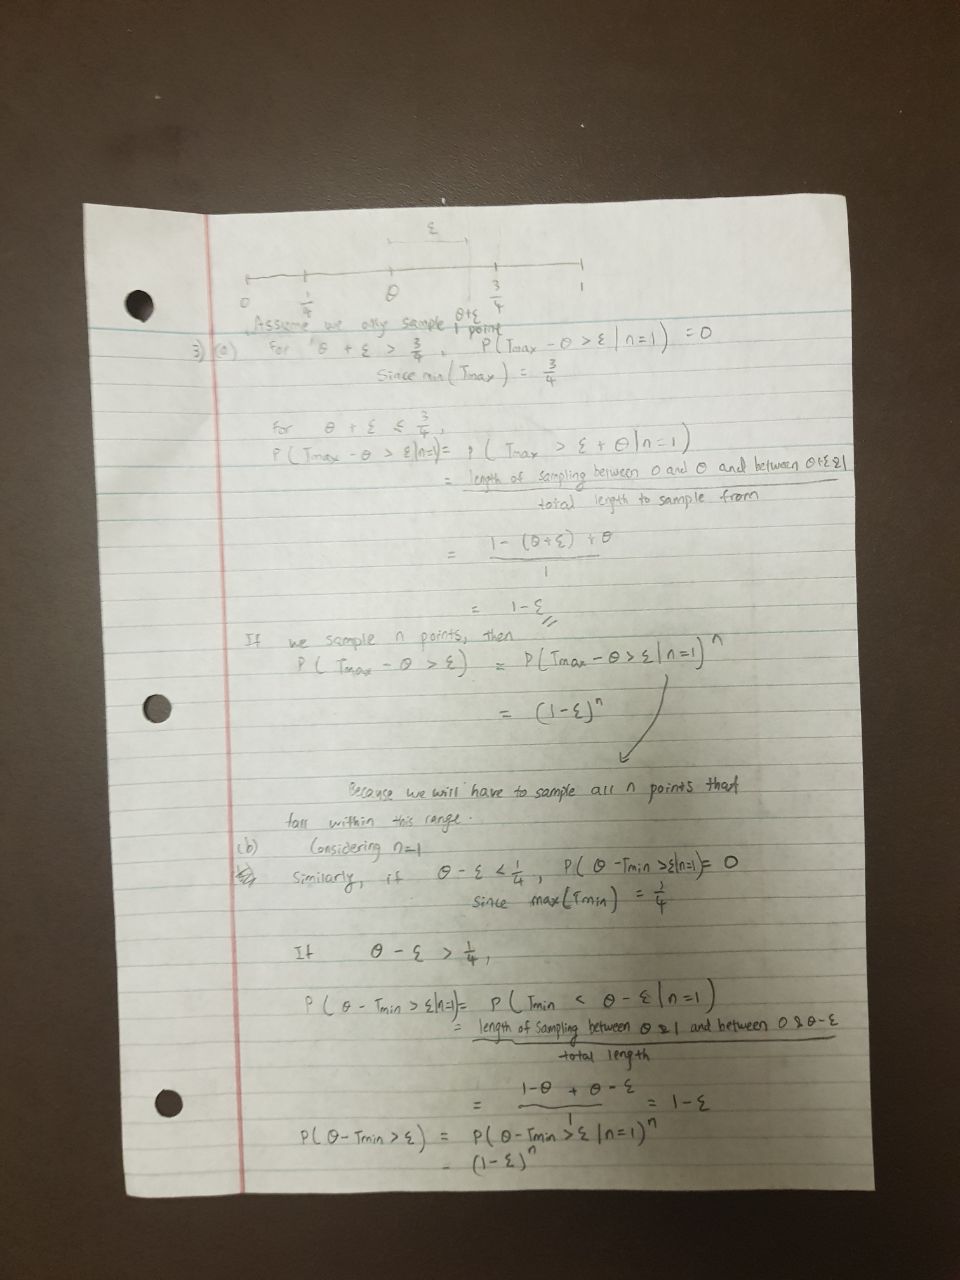 ε
0 1/4 θ 3/4 1
θ+ε
Assume we only sample 1 point
3) (a) For θ + ε > 3/4, P(Tmax - θ > ε | n=1) = 0
Since min(Tmax) = 3/4
For θ + ε ≤ 3/4,
P(Tmax - θ > ε|n=1) = P(Tmax > ε + θ|n=1)
= length of sampling between 0 and θ and between θ+ε & 1
total length to sample from
= 1-(θ+ε) + θ
1
= 1-ε
If we sample n points, then
P(Tmax - θ > ε) = P(Tmax - θ > ε | n=1)^n
= (1-ε)^n
Because we will have to sample all n points that
fall within this range.
(b) Considering n=1
Similarly, if θ - ε < 1/4, P(θ - Tmin > ε|n=1) = 0
since max(Tmin) = 1/4
If θ - ε > 1/4,
P(θ - Tmin > ε|n=1) = P(Tmin < θ - ε | n=1)
= length of sampling between θ & 1 and between 0 & θ-ε
total length
= 1-θ + θ-ε = 1-ε
1
P(θ-Tmin > ε) = P(θ-Tmin > ε | n=1)^n
= (1-ε)^n